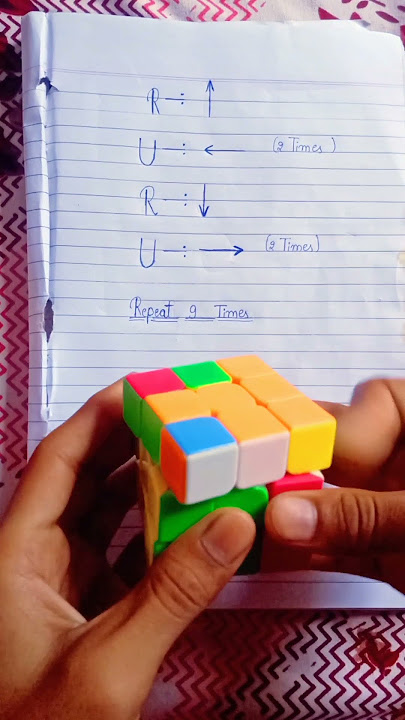 R - : ↑
U - : ← (2 Times)
R - : ↓
U - : → (2 Times)
Repeat 9 Times